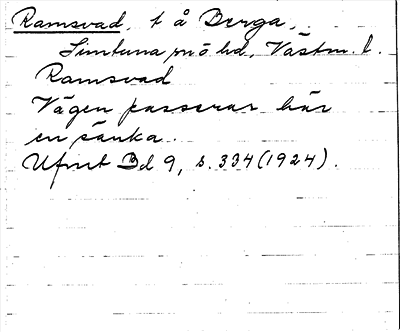 Ramsvad, t å Berga,
Simtuna sn ö hd, Västm. l.
Ramsvad
Vägen passerar här
en sänka.
Ufmt Bd 9, s. 334 (1924).